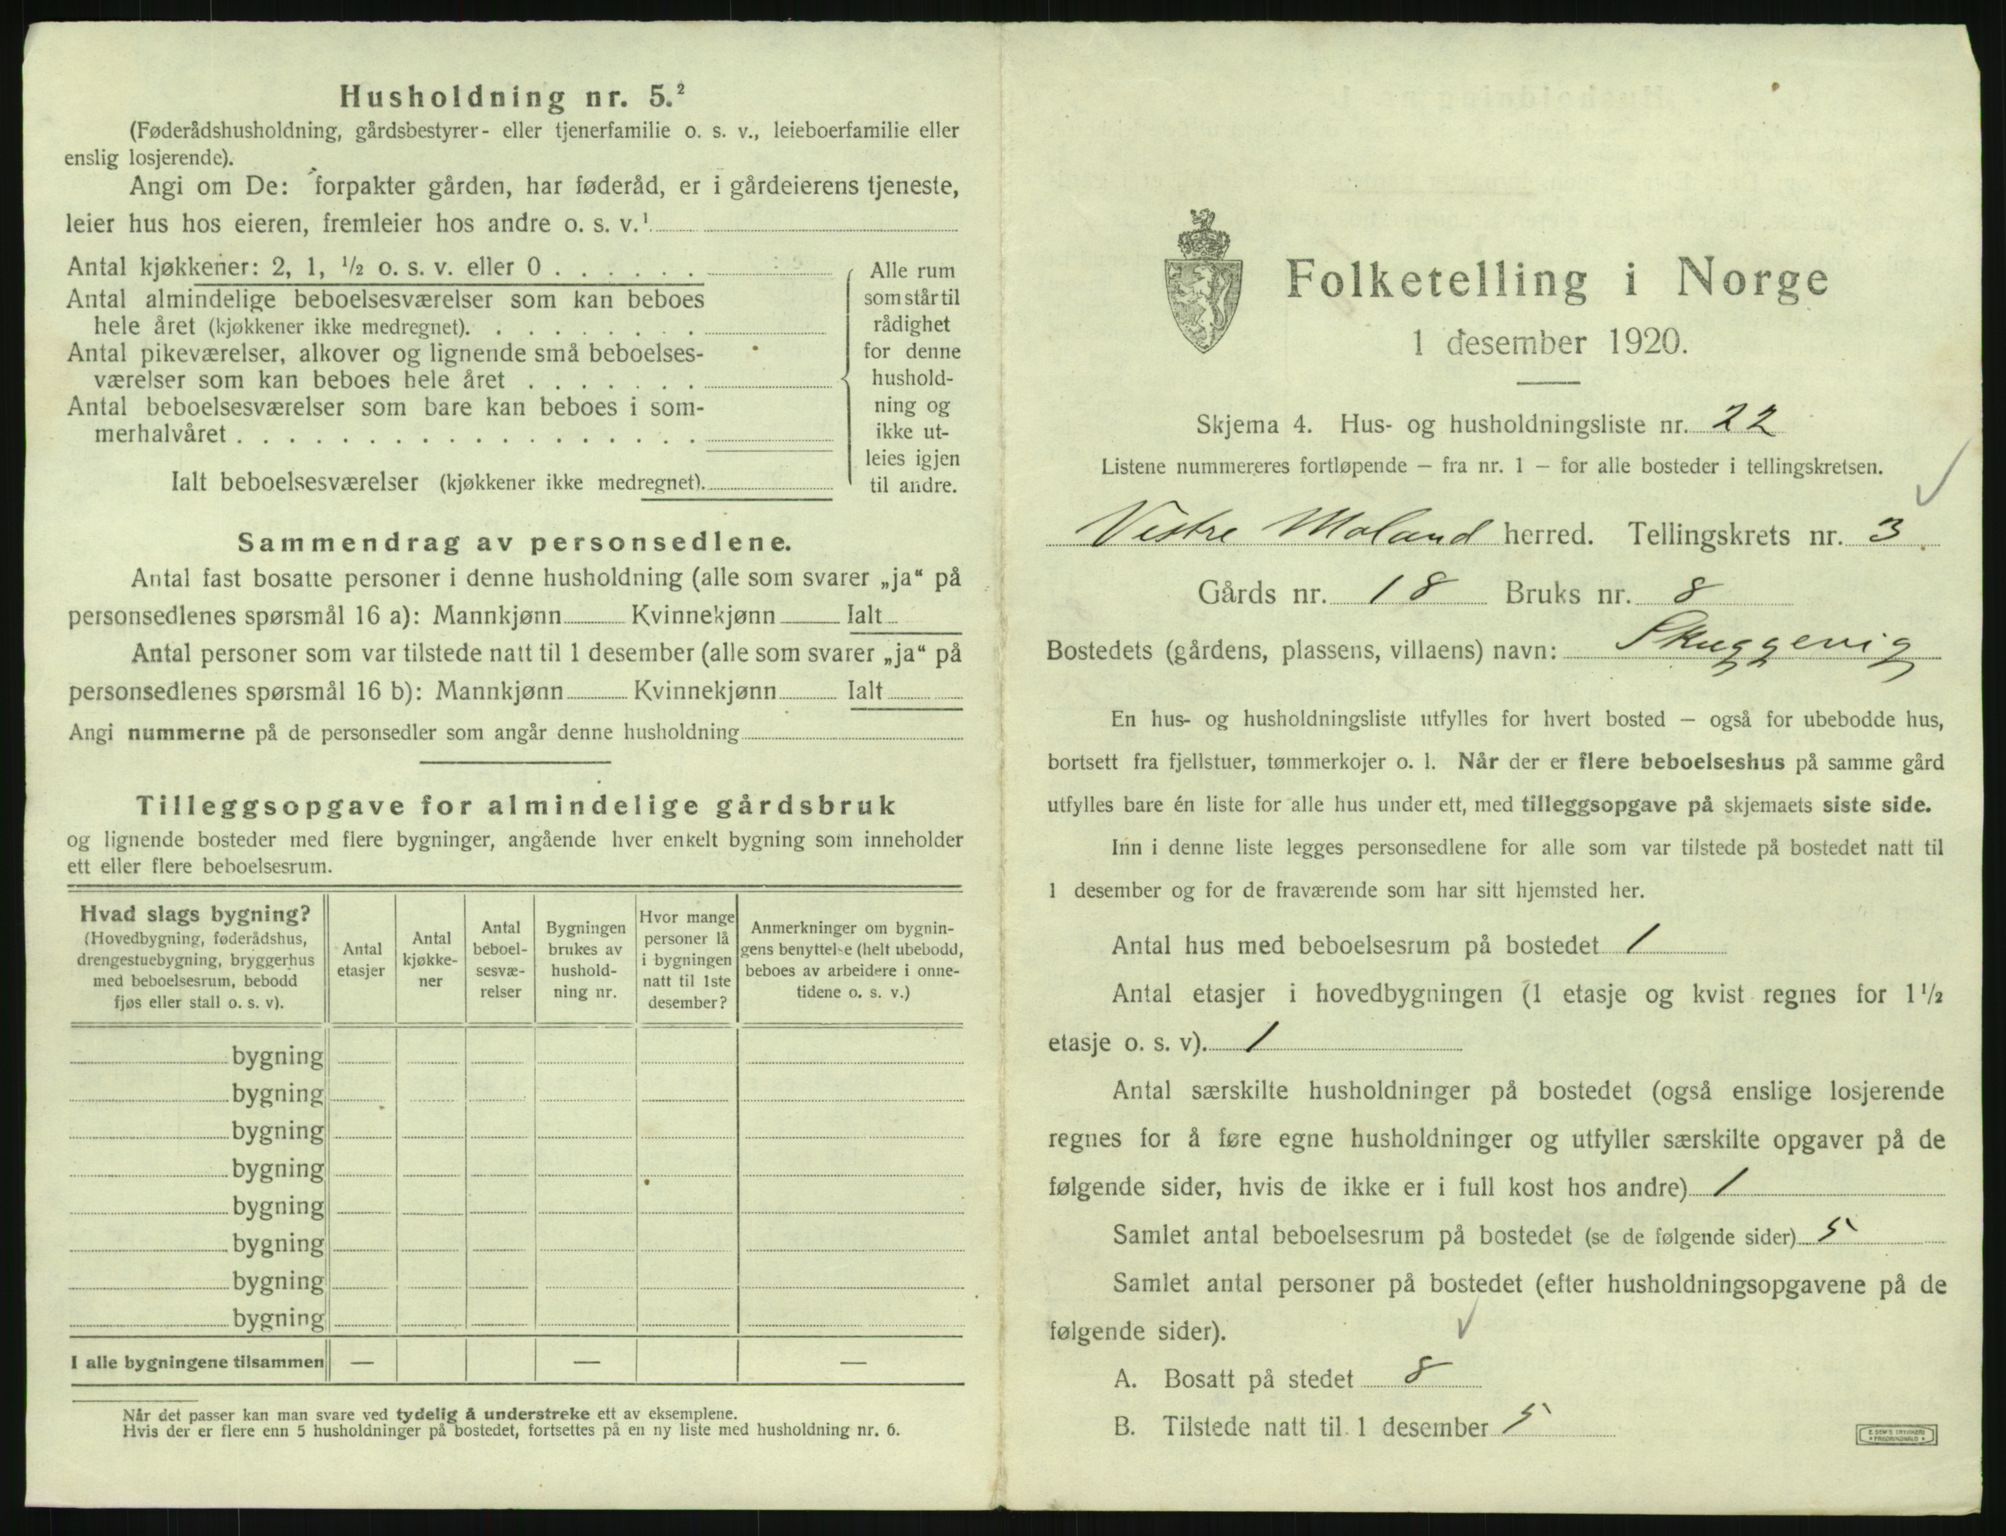 Husholdning nr. 5.²
(Føderådshusholdning, gårdsbestyrer- eller tjenerfamilie o. s. v., leieboerfamilie eller
enslig losjerende).
Angi om De: forpakter gården, har føderåd, er i gårdeierens tjeneste,
leier hus hos eieren, fremleier hos andre o. s. v.¹
Antal kjøkkener: 2, 1, ½ o. s. v. eller 0 . . . . . .
Antal almindelige beboelsesværelser som kan beboes
hele året (kjøkkener ikke medregnet). . . . . . . . .
Antal pikeværelser, alkover og lignende små beboelses-
værelser som kan beboes hele året . . . . . . .
Antal beboelsesværelser som bare kan beboes i som-
merhalvåret . . . . . . . . . . . . . . . . . .
Ialt beboelsesværelser (kjøkkener ikke medregnet).
Alle rum
som står til
rådighet
for denne
hushold-
ning og
ikke ut-
leies igjen
til andre.
Sammendrag av personsedlene.
Antal fast bosatte personer i denne husholdning (alle som svarer „ja“ på
personsedlenes spørsmål 16 a): Mannkjønn Kvinnekjønn Ialt
Antal personer som var tilstede natt til 1 desember (alle som svarer „ja“ på
personsedlenes spørsmål 16 b): Mannkjønn Kvinnekjønn Ialt
Angi nummerne på de personsedler som angår denne husholdning
Tilleggsopgave for almindelige gårdsbruk
og lignende bosteder med flere bygninger, angående hver enkelt bygning som inneholder
ett eller flere beboelsesrum.
Hvad slags bygning?
(Hovedbygning, føderådshus,
drengestuebygning, bryggerhus
med beboelsesrum, bebodd
fjøs eller stall o. s. v).
Antal
etasjer
Antal
kjøkke-
ner
Antal
beboel-
sesvæ-
relser
Bygningen
brukes av
hushold-
ning nr.
Hvor mange
personer lå
i bygningen
natt til 1ste
desember?
Anmerkninger om bygnin-
gens benyttelse (helt ubebodd,
beboes av arbeidere i onne-
tidene o. s. v.)
bygning
bygning
bygning
bygning
bygning
bygning
bygning
bygning
I alle bygningene tilsammen — — —
Når det passer kan man svare ved tydelig å understreke ett av eksemplene.
Hvis der er flere enn 5 husholdninger på bostedet, fortsettes på en ny liste med husholdning nr. 6.
Folketelling i Norge
1 desember 1920.
Skjema 4. Hus- og husholdningsliste nr. 22
Listene nummereres fortløpende – fra nr. 1 – for alle bosteder i tellingskretsen.
Vestre Moland herred. Tellingskrets nr. 3
Gårds nr. 18 Bruks nr. 8
Bostedets (gårdens, plassens, villaens) navn: Skuggevig
En hus- og husholdningsliste utfylles for hvert bosted – også for ubebodde hus,
bortsett fra fjellstuer, tømmerkojer o. l. Når der er flere beboelseshus på samme gård
utfylles bare én liste for alle hus under ett, med tilleggsopgave på skjemaets siste side.
Inn i denne liste legges personsedlene for alle som var tilstede på bostedet natt til
1 desember og for de fraværende som har sitt hjemsted her.
Antal hus med beboelsesrum på bostedet 1
Antal etasjer i hovedbygningen (1 etasje og kvist regnes for 1½
etasje o. s. v). 1
Antal særskilte husholdninger på bostedet (også enslige losjerende
regnes for å føre egne husholdninger og utfyller særskilte opgaver på de
følgende sider, hvis de ikke er i full kost hos andre) 1
Samlet antal beboelsesrum på bostedet (se de følgende sider) 5
Samlet antal personer på bostedet (efter husholdningsopgavene på de
følgende sider).
A. Bosatt på stedet 8
B. Tilstede natt til 1 desember 5